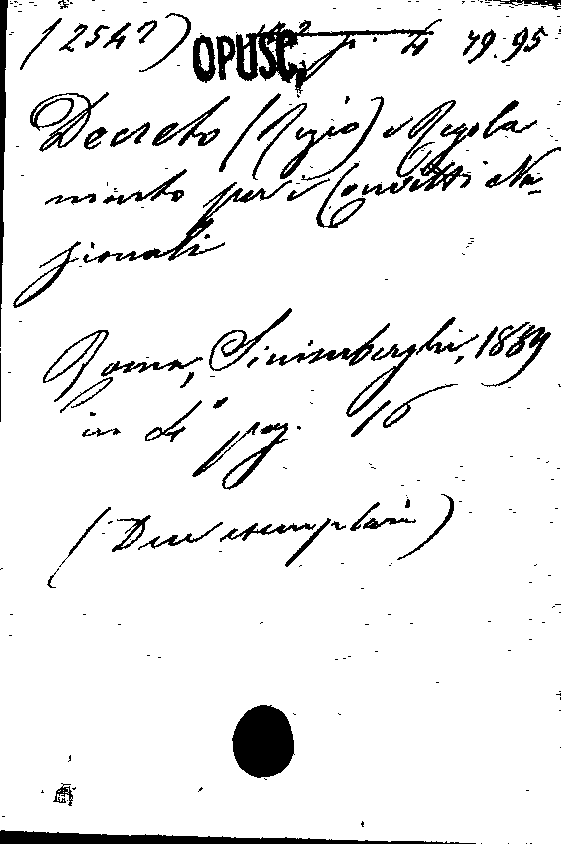 (2542) OPUSC. p. 4 79.95
Decreto (Regio) e Regola
mento per i Convitti Na-
zionali
Roma, Sinimberghi, 1889
in 4° pag. 16
(Due esemplari)